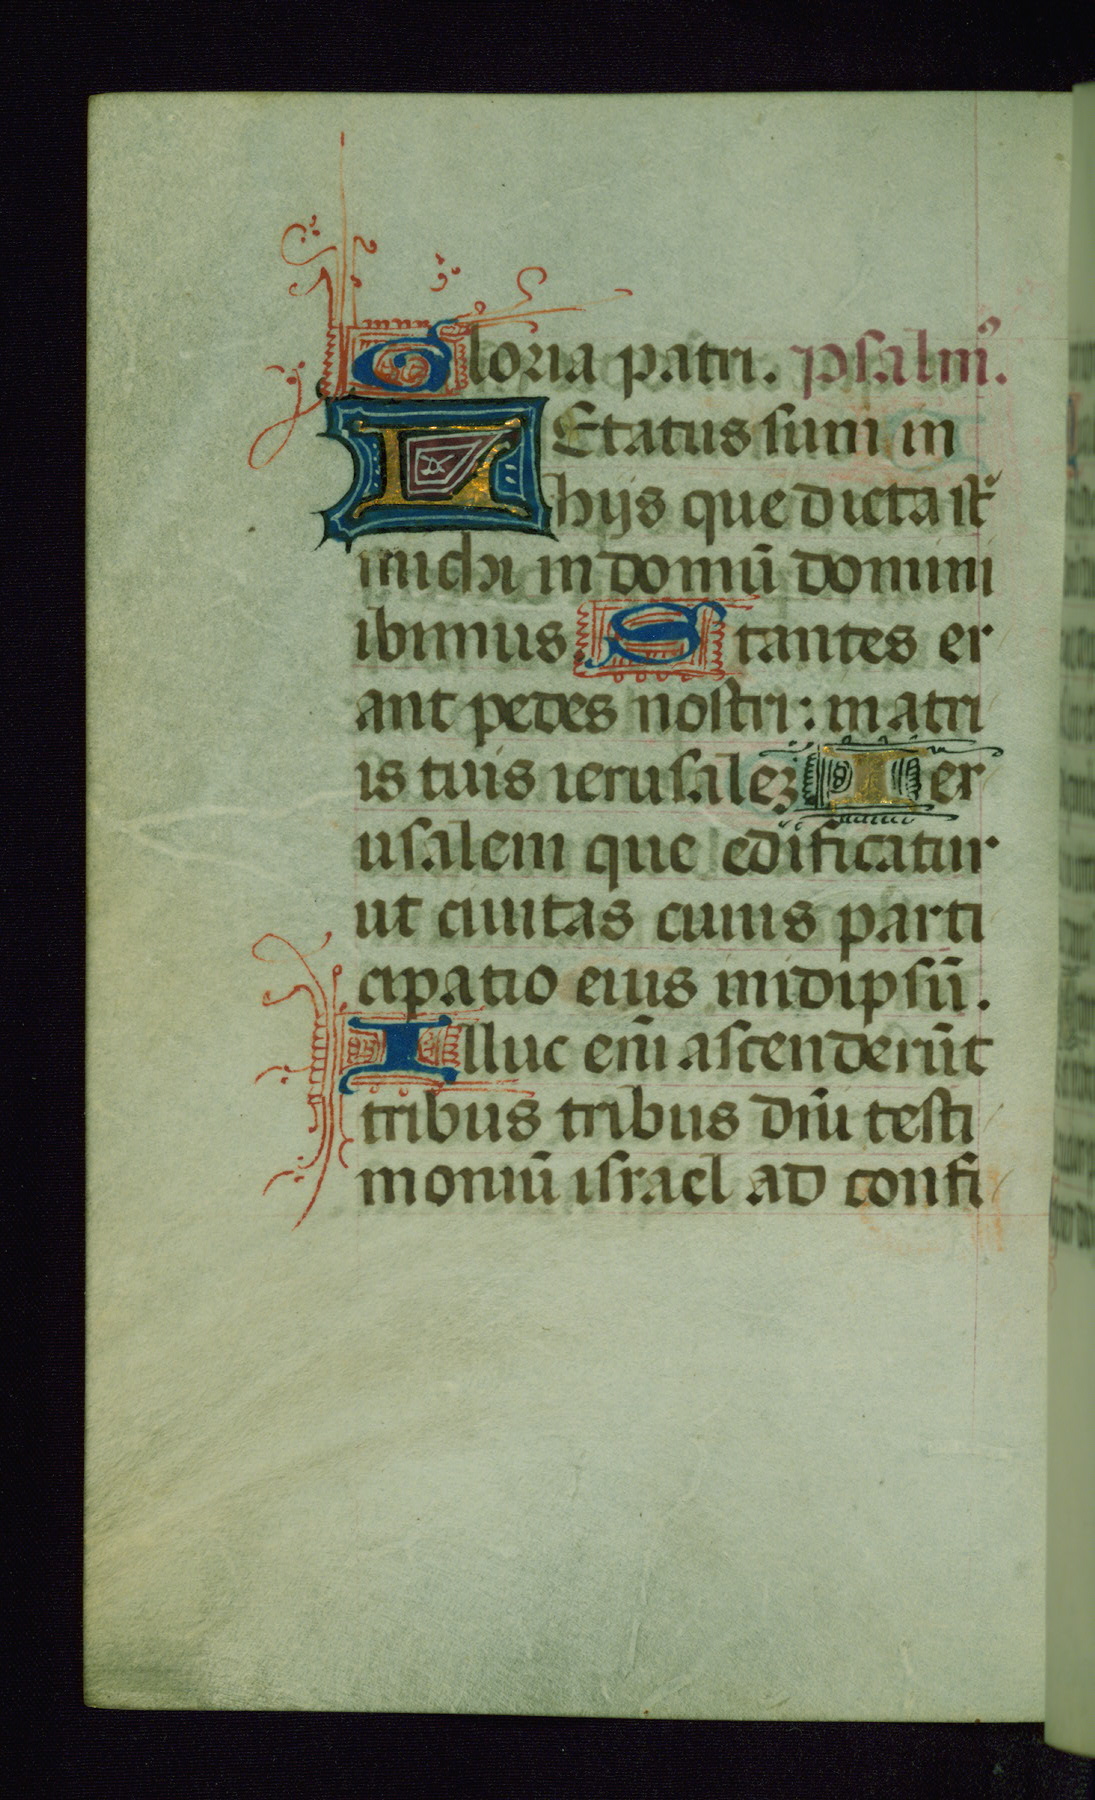 Gloria patri. psalm̄⁹.
LEtatus sum in
hijs que dicta st̄
michi in domū domini
ibimus. Stantes er
ant pedes nostri: in atri
is tuis ierusaleꝫ Ier
usalem que edificatur
ut ciuitas cuius parti
cipatio eius inidipsū.
Illuc em̄ ascenderūt
tribus tribus dn̄i testi
moniū israel ad confi